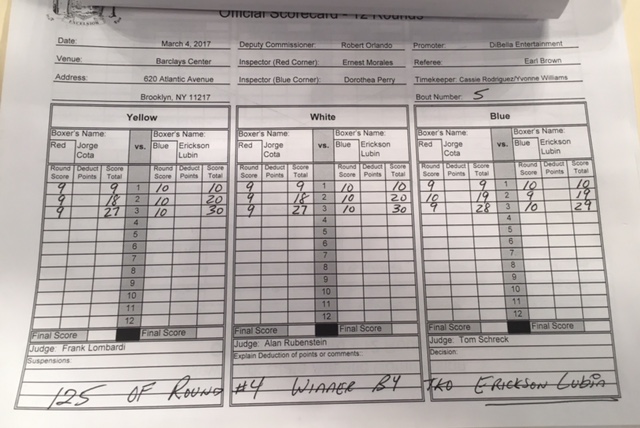 EXCELSIOR
Official Scorecard - 12 Rounds
Date: March 4, 2017 Deputy Commissioner: Robert Orlando Promoter: DiBella Entertainment
Venue: Barclays Center Inspector (Red Corner): Ernest Morales Referee: Earl Brown
Address: 620 Atlantic Avenue Inspector (Blue Corner): Dorothea Perry Timekeeper: Cassie Rodriguez/Yvonne Williams
Brooklyn, NY 11217 Bout Number: 5
Yellow White Blue
Boxer's Name: Boxer's Name: Boxer's Name: Boxer's Name: Boxer's Name: Boxer's Name:
Red Jorge vs. Blue Erickson Red Jorge vs. Blue Erickson Red Jorge vs. Blue Erickson
Cota Lubin Cota Lubin Cota Lubin
Round Deduct Score Round Deduct Score Round Deduct Score Round Deduct Score Round Deduct Score Round Deduct Score
Score Points Total Score Points Total Score Points Total Score Points Total Score Points Total Score Points Total
9 9 1 10 10 9 9 1 10 10 9 9 1 10 10
9 18 2 10 20 9 18 2 10 20 10 19 2 9 19
9 27 3 10 30 9 27 3 10 30 9 28 3 10 29
4 4 4
5 5 5
6 6 6
7 7 7
8 8 8
9 9 9
10 10 10
11 11 11
12 12 12
Final Score Final Score Final Score Final Score Final Score Final Score
Judge: Frank Lombardi Judge: Alan Rubenstein Judge: Tom Schreck
Suspensions: Explain Deduction of points or comments: Decision:
125 OF ROUND #4 WINNER BY TKO ERICKSON LUBIN